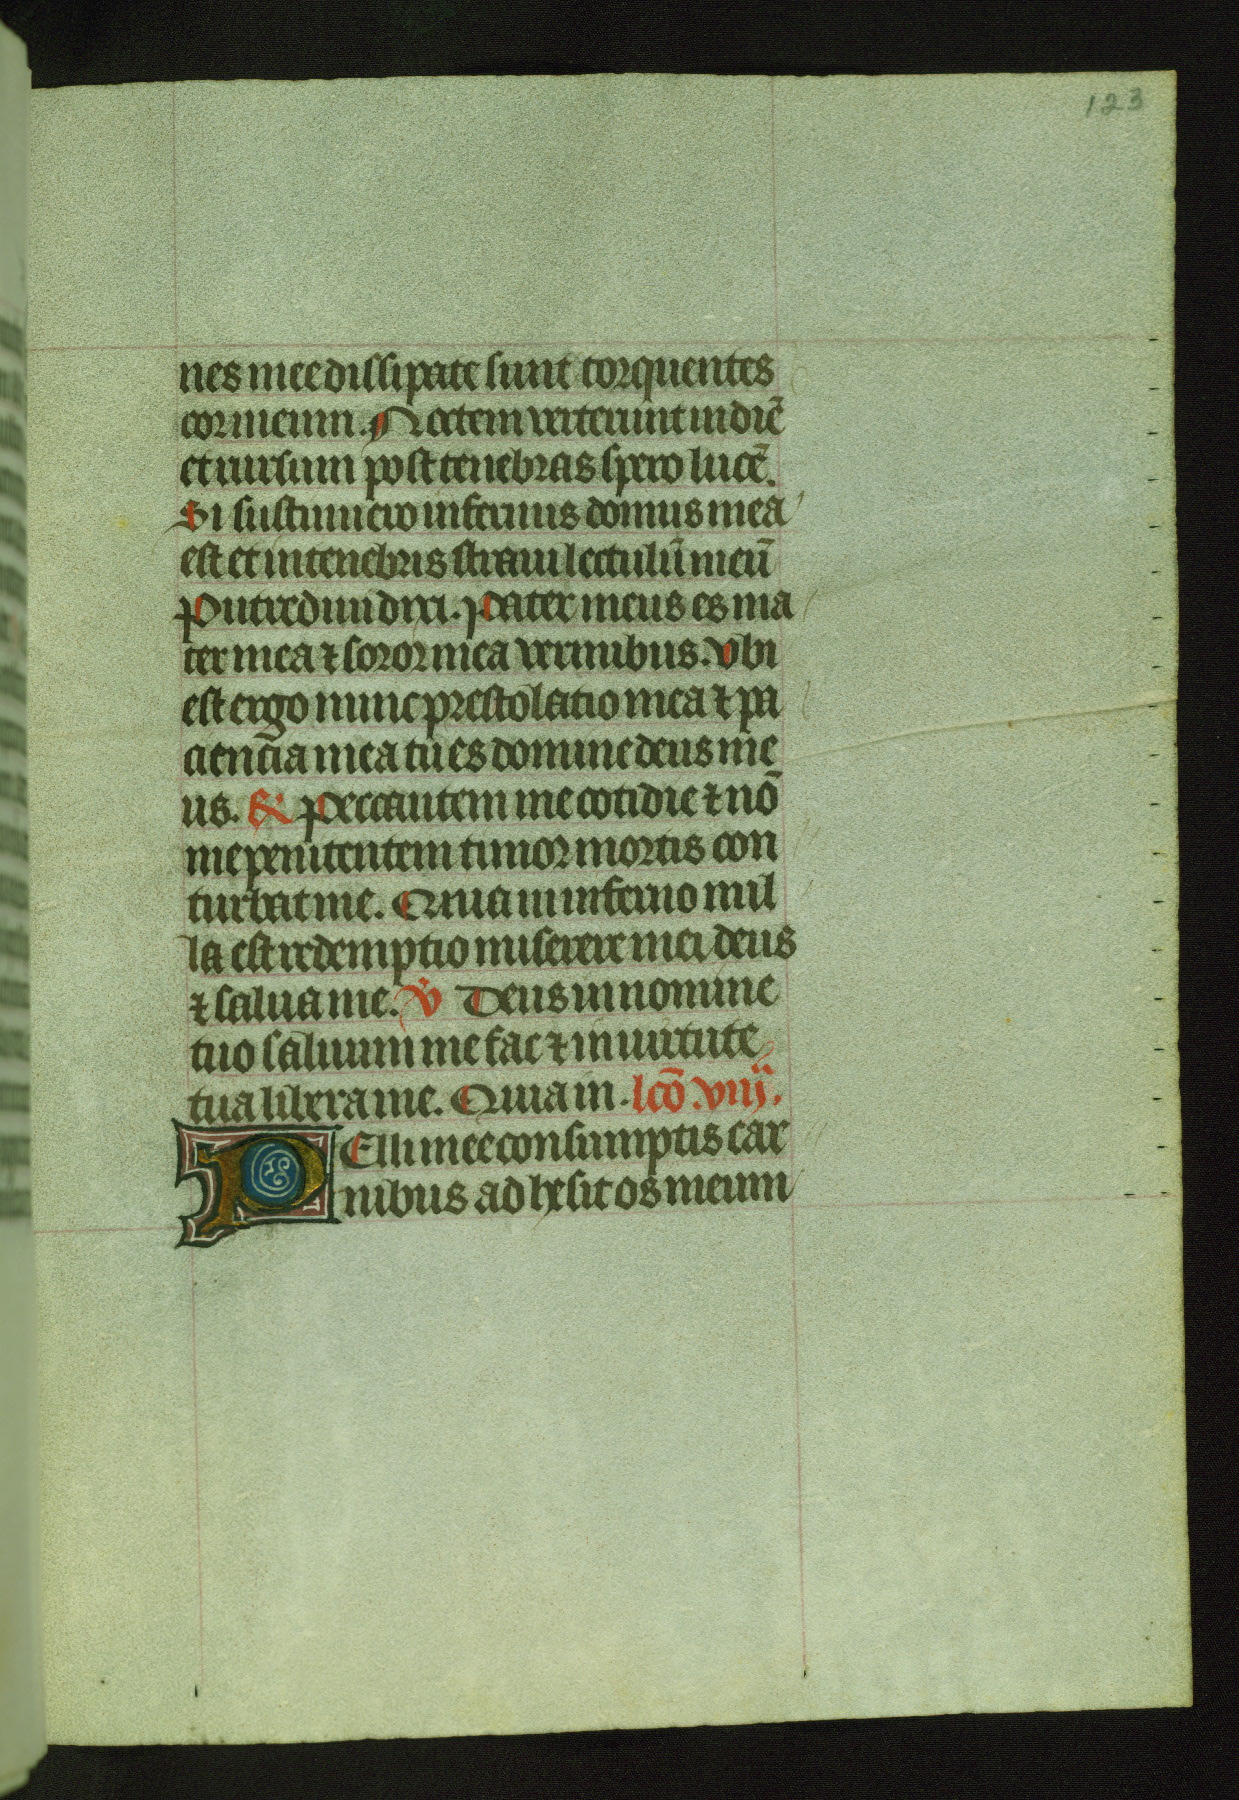 123
nes mee dissipate sunt torquentes
cor meum. Noctem verterunt in diē
et rursum post tenebras spero lucē.
Si sustinuero infernus domus mea
est et in tenebris straui lectulū meū
Putredini dixi. pater meus es ma
ter mea ⁊ soror mea vermibus. vbi
est ergo nunc prestolatio mea ⁊ pa
ciencia mea tu es domine deus me
us. ℟ Peccantem me cotidie ⁊ nō
me penitentem timor mortis con
turbat me. Quia in inferno nul
la est redemptio miserere mei deus
⁊ salua me. ℣ Deus in nomine
tuo saluum me fac ⁊ in uirtute
tua libera me. Quia in. lcō. viij.
PElli mee consumptis car
nibus adhesit os meum